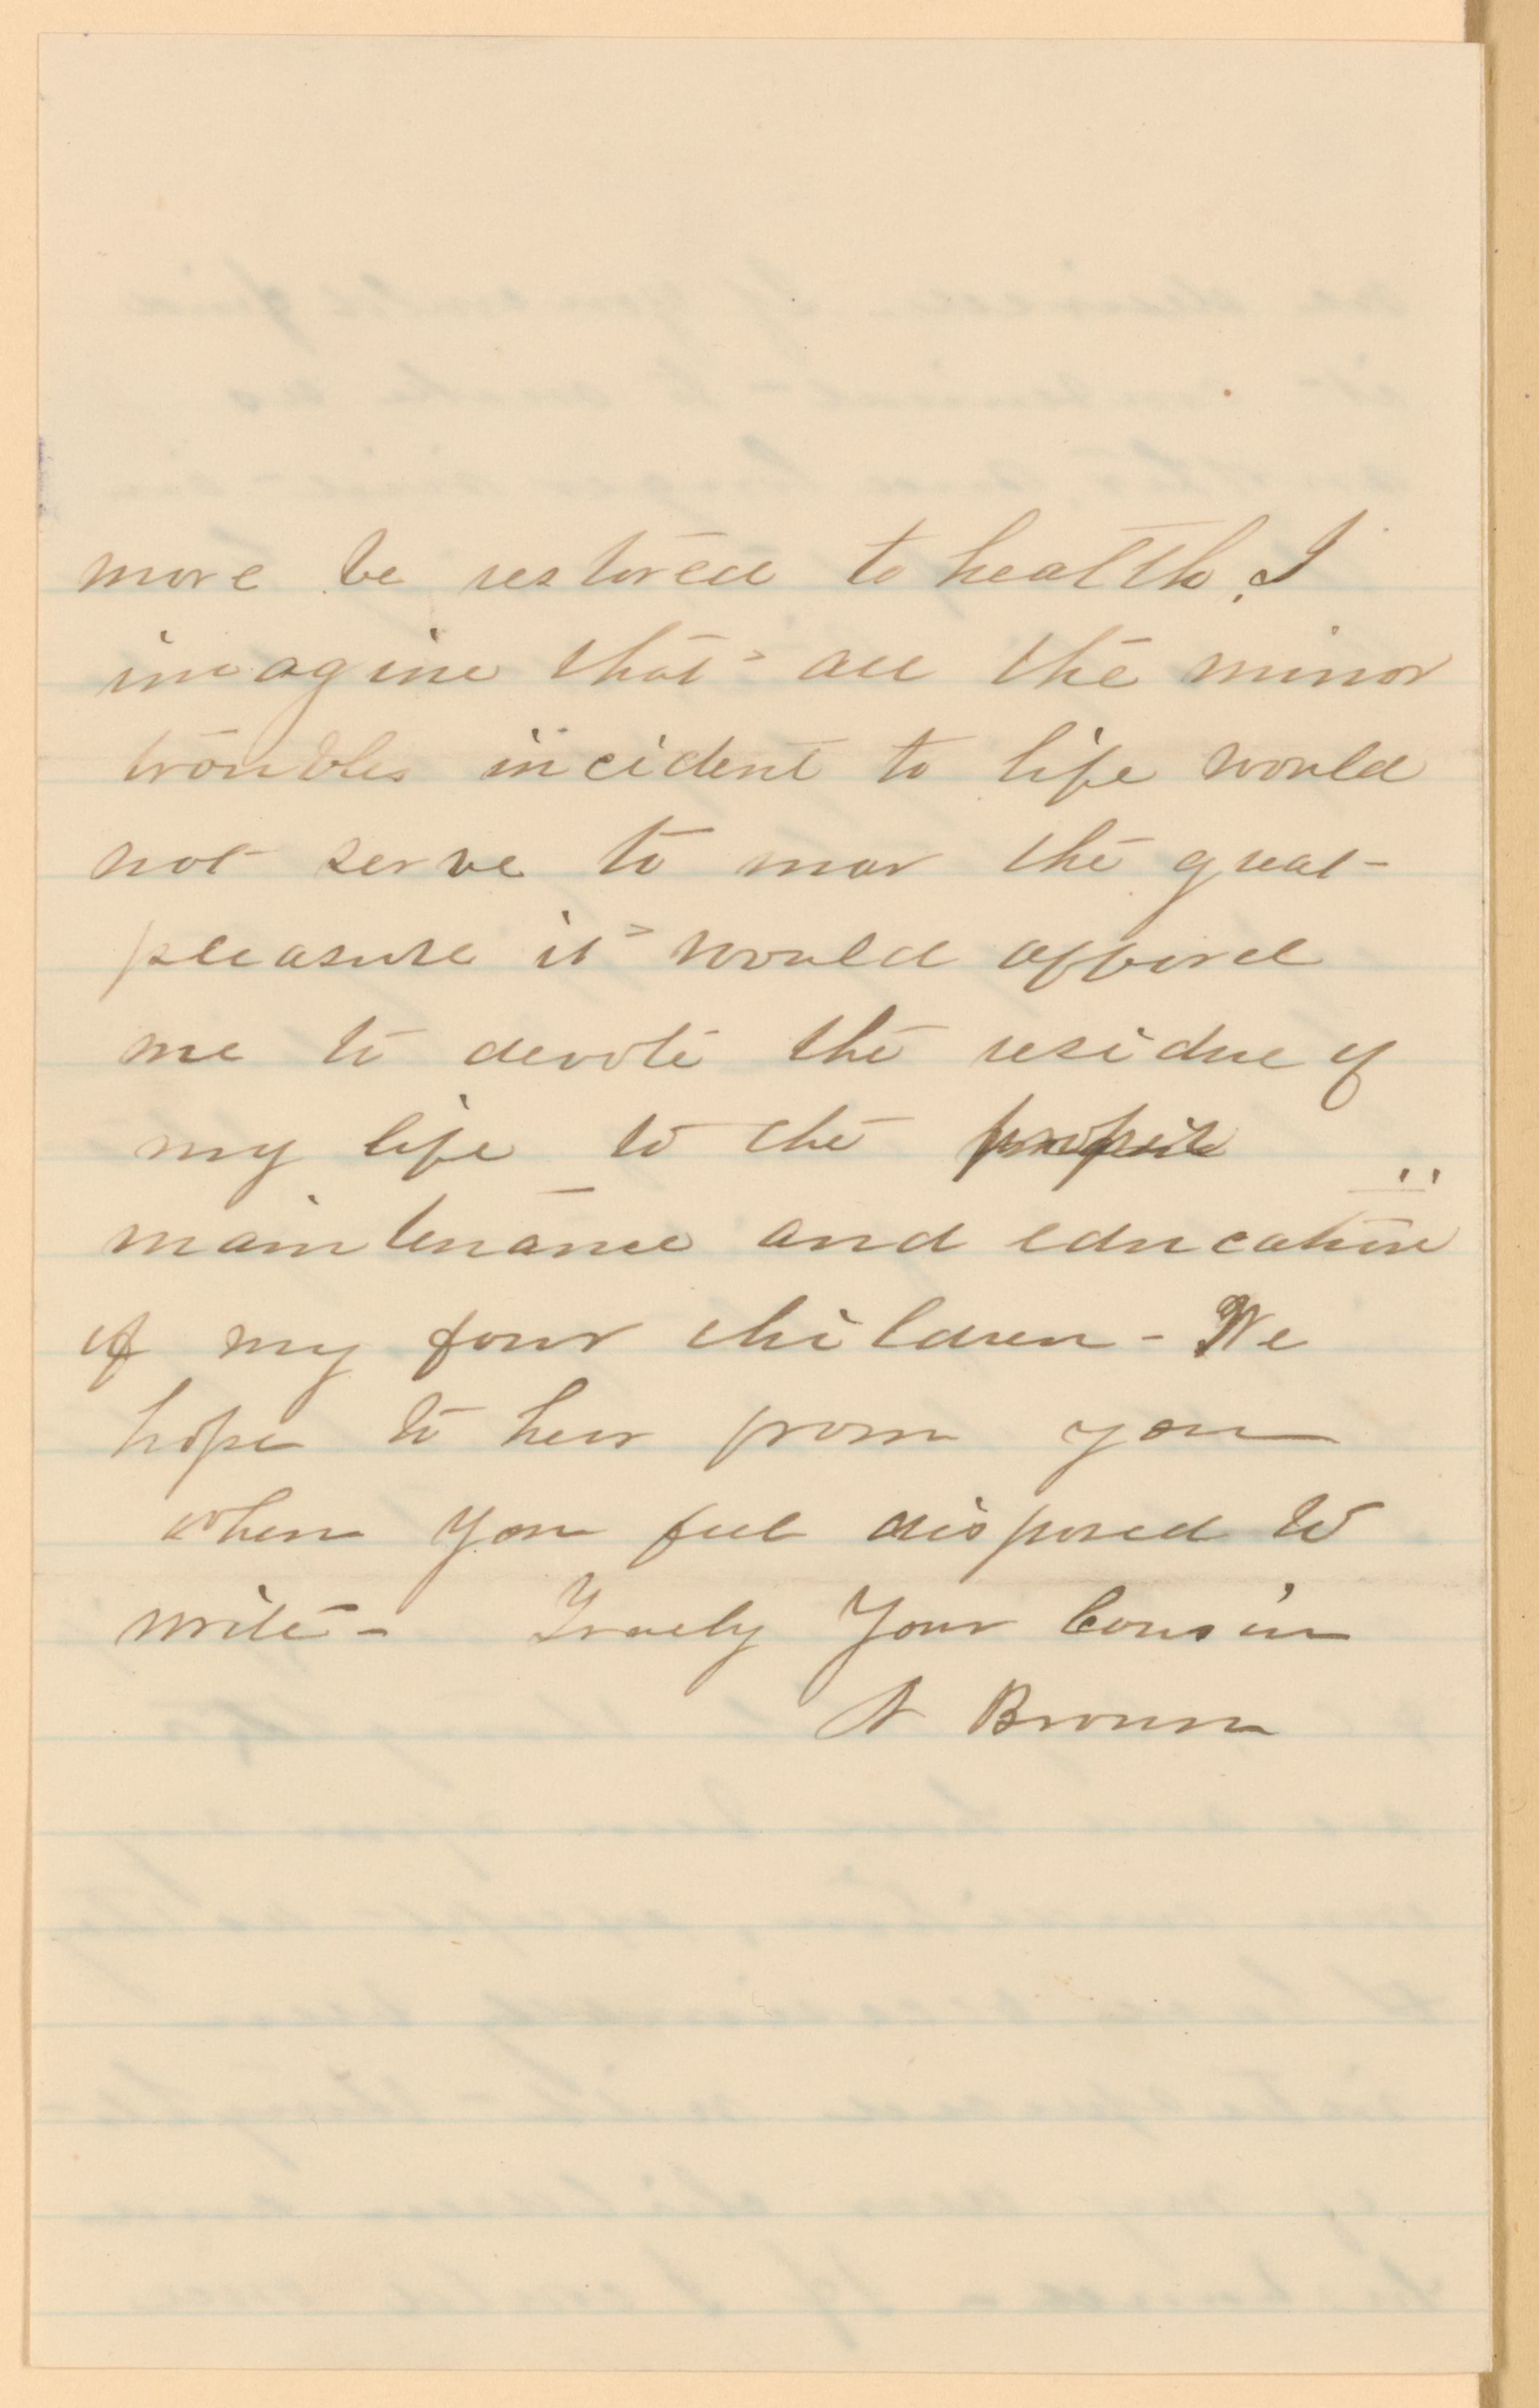 more be restored to health. I
imagine that all the minor
troubles incident to life would
not serve to mar the great
pleasure it would afford
me to devote the residue of
my life to the
maintenance and education
of my four children - We
hope to hear from you
when you feel disposed to
write - Truely Your Cousin
A Brown